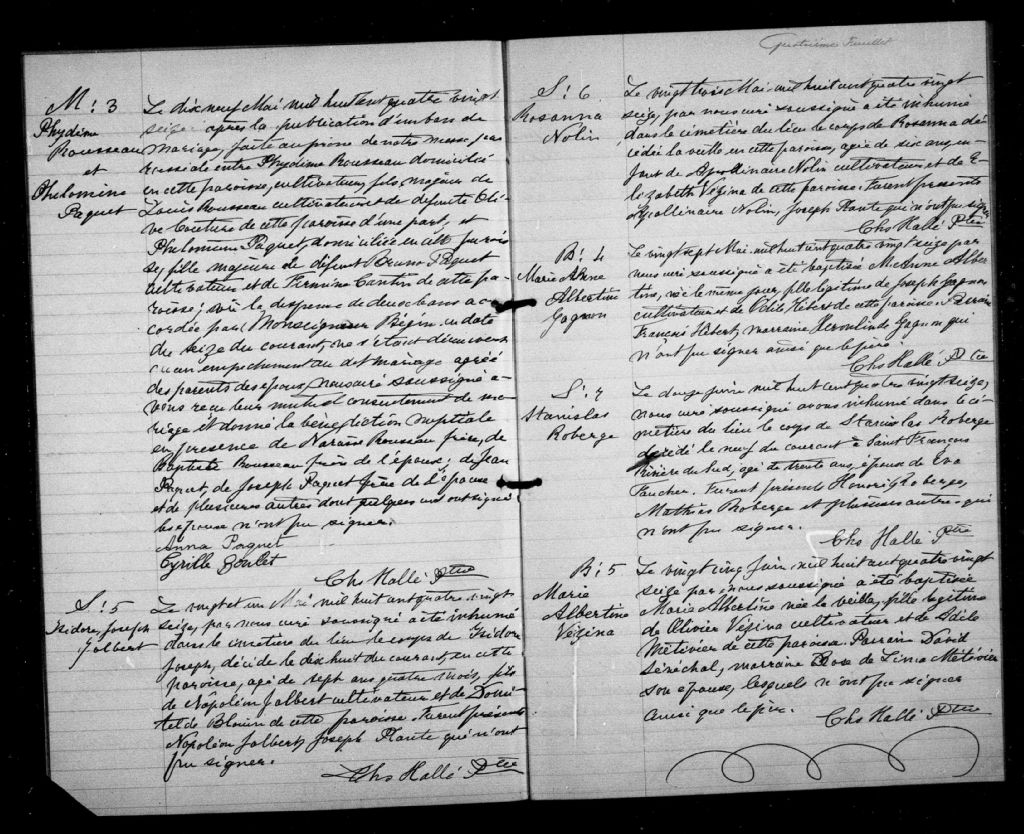 M: 3
Phydime
Rousseau
et
Philomine
Paquet
Le dix neuf Mai mil huit cent quatre vingt
seize, après la publication d'un ban de
mariage, faite au prône de notre messe pa-
roissiale entre Phydime Rousseau domicilié
en cette paroisse, cultivateur, fils majeur de
Louis Rousseau cultivateur et de défunte Oli-
ve Couture de cette paroisse d'une part, et
Philomine Paquet domiciliée en cette parois
se, fille majeure de défunt Bruno Paquet
cultivateur et de Fermine Cantin de cette pa-
roisse; vû la dispense de deux bans ac-
cordée par Monseigneur Bégin en date
du seize du courant, ne s'étant découvert
aucun empêchement au dit mariage agréé
des parents des époux, nous curé soussigné a-
vons reçu leur mutuel consentement de ma-
riage et donné la bénédiction nuptiale
en présence de Narcisse Rousseau frère, de
Baptiste Rousseau frère de l'époux; de Jean
Paquet, de Joseph Paquet frère de l'épouse
et de plusieurs autres dont quelques uns ont signé
les époux n'ont pu signer.
Anna Paquet
Cyrille Goulet
Chs Hallé Ptre
S: 5
Isidore Joseph
Jalbert
Le vingt et un Mai mil huit cent quatre vingt
seize, par nous curé soussigné a été inhumé
dans le cimetière du lieu le corps de Isidore
Joseph, décédé le dix huit du courant, en cette
paroisse, agé de sept ans quatre mois, fils
de Napoléon Jalbert cultivateur et de Domi-
tilde Blouin de cette paroisse. Furent présents
Napoléon Jalbert, Joseph Plante qui n'ont
pu signer.
Chs Hallé Ptre
Quatrième Feuillet
S: 6
Rosanna
Nolin
Le vingt trois Mai mil huit cent quatre vingt
seize, par nous curé soussigné a été inhumé
dans le cimetière du lieu le corps de Rosanna dé-
cédée la veille en cette paroisse, agée de six ans, en-
fant de Apollinaire Nolin cultivateur et de E-
lizabeth Vézina de cette paroisse. Furent présents
Apollinaire Nolin, Joseph Plante qui n'ont pu signer
Chs Hallé Ptre
B: 4
Marie Anne
Albertine
Gagnon
Le vingt sept Mai mil huit cent quatre vingt seize par
nous curé soussigné a été baptisée M. Anne Alber
tine, née le même jour, fille légitime de Joseph Gagnon
cultivateur et de Odile Hébert de cette paroisse. Parrain
François Hébert, marraine Gagnon qui
n'ont pu signer ainsi que le père.
Chs Hallé Ptre
S: 7
Stanislas
Roberge
Le douze juin mil huit cent quatre vingt seize,
nous curé soussigné avons inhumé dans le ci-
metière du lieu le corps de Stanislas Roberge
décédé le neuf du courant à Saint François
Rivière du Sud, agé de trente ans, époux de Eva
Faucher. Furent présents Honoré Roberge,
Mathias Roberge et plusieurs autres qui
n'ont pu signer.
Chs Hallé Ptre
B: 5
Marie
Albertine
Vézina
Le vingt cinq Juin mil huit cent quatre vingt
seize par nous soussigné a été baptisée
Marie Albertine née la veille, fille légitime
de Olivier Vézina cultivateur et de Adèle
Métivier de cette paroisse. Parrain David
Sénéchal, marraine Rose de Lima Métivier
son épouse, lesquels n'ont pu signer
ainsi que le père.
Chs Hallé Ptre